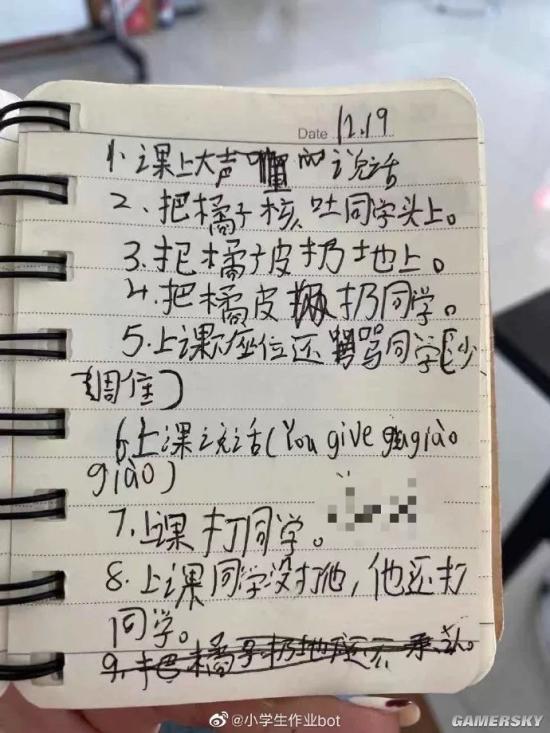 Date 12.19
1.课上大声的说话
2、把橘子核吐同学头上。
3.把橘子皮扔地上。
4.把橘皮扔同学。
5.上课座位还骂同学[
周佳]
6.上课说话(You give gugiào
giào)
7.上课打同学。
8.上课同学没打他,他还打
同学。
9.把橘子扔地还不承认。
@小学生作业bot
GAMERSKY